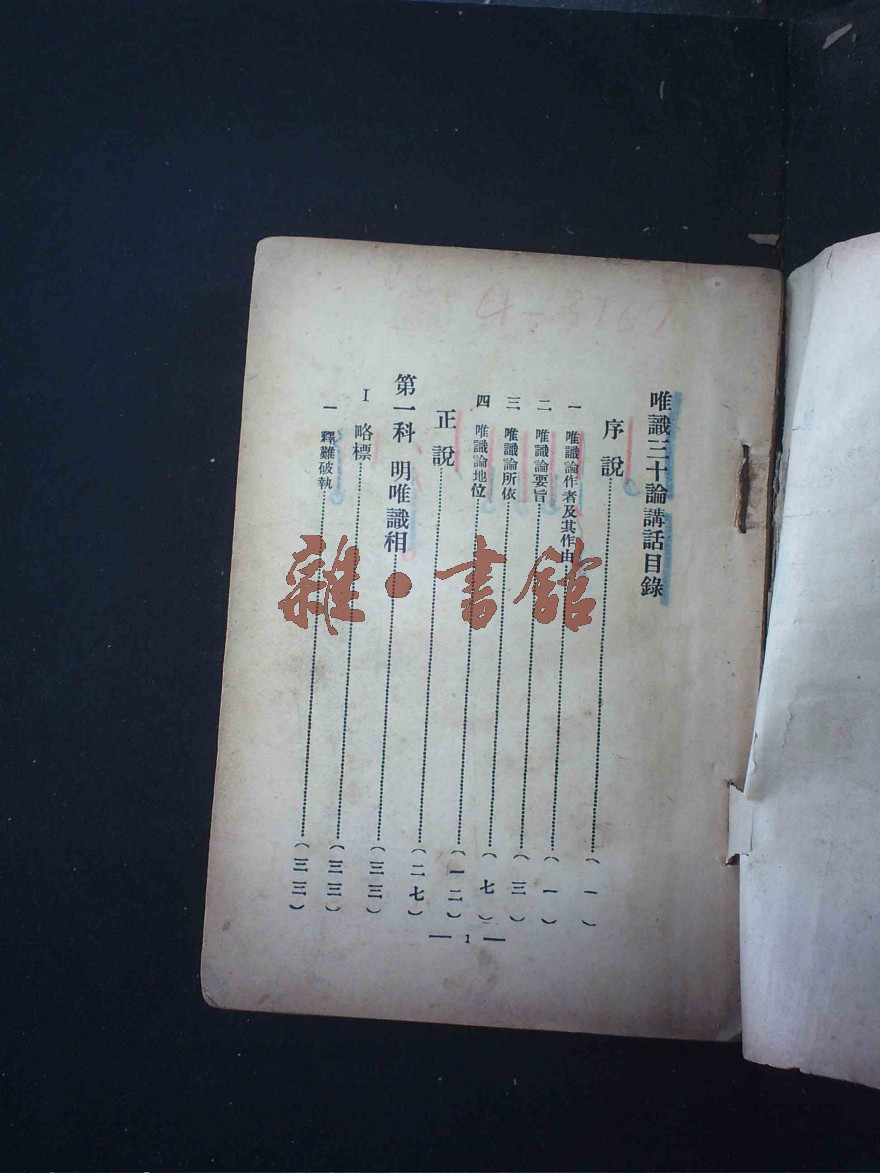 唯識三十論講話目錄
序說……(一)
一 唯識論作者及其作由……(一)
二 唯識論要旨……(三)
三 唯識論所依……(七)
四 唯識論地位……(一二)
正說……(二七)
第一科 明唯識相……(三三)
I 略標……(三三)
一 釋難破執……(三三)
— 1 —
雜·書館